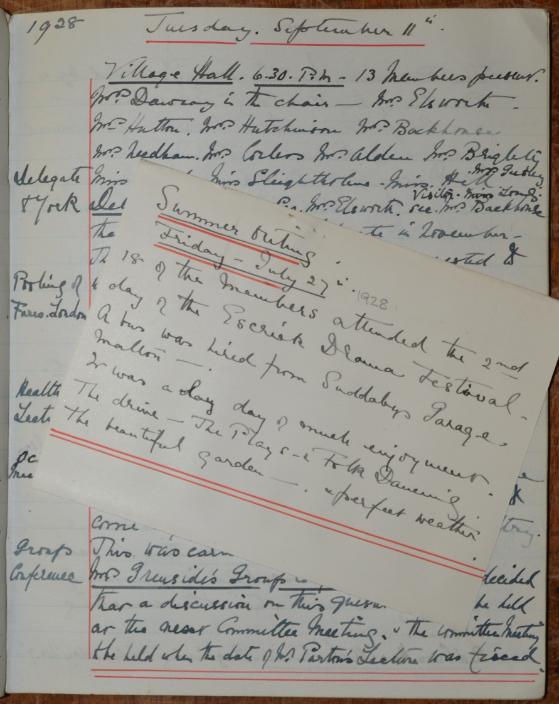 1928
Tuesday. September 11th
Village Hall. 6.30. P.M - 13 Members present.
Mrs Dawnay in the chair - Mrs Elsworth -
Mrs Hutton. Mrs Hutchinson Mrs Backhouse
Mrs Needham. Mrs Mrs Alden Mrs Brightey
Mrs Suddaby
Miss Sleightholme - Miss Hall
Visitor - Miss Long
Delegate
& York
Mrs Elsworth. sec. Mrs Backhouse
the in November -
Pooling of
Fares. London
Health
Summer Outing
Friday - July 27th. 1928
18 of the Members attended the 2nd
day of the Escrick Drama Festival -
A bus was hired from Suddabys Garage
Malton -
It was a day of much enjoyment.
The drive - The Plays - & Folk Dancing
The beautiful garden - . & perfect weather.
Groups
Conference
This was
Mrs Greenside's Group decided
that a discussion on this be held
at the next Committee Meeting. The Committee Meeting
to be held when the date of Mr Parton's Lecture was fixed.